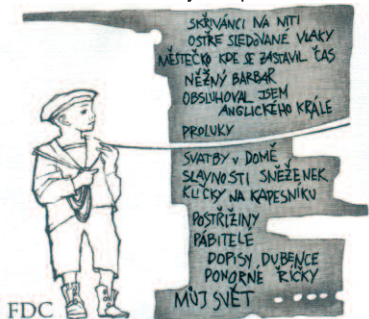 SKŘIVÁNCI NA NITI
OSTŘE SLEDOVANÉ VLAKY
MĚSTEČKO KDE SE ZASTAVIL ČAS
NĚŽNÝ BARBAR
OBSLUHOVAL JSEM
ANGLICKÉHO KRÁLE
PROLUKY
SVATBY V DOMĚ
SLAVNOSTI SNĚŽENEK
KLICKY NA KAPESNÍKU
POSTŘIŽINY
PÁBITELÉ
DOPISY DUBENCE
PONORNE ŘÍČKY
MŮJ SVĚT . . . .
FDC